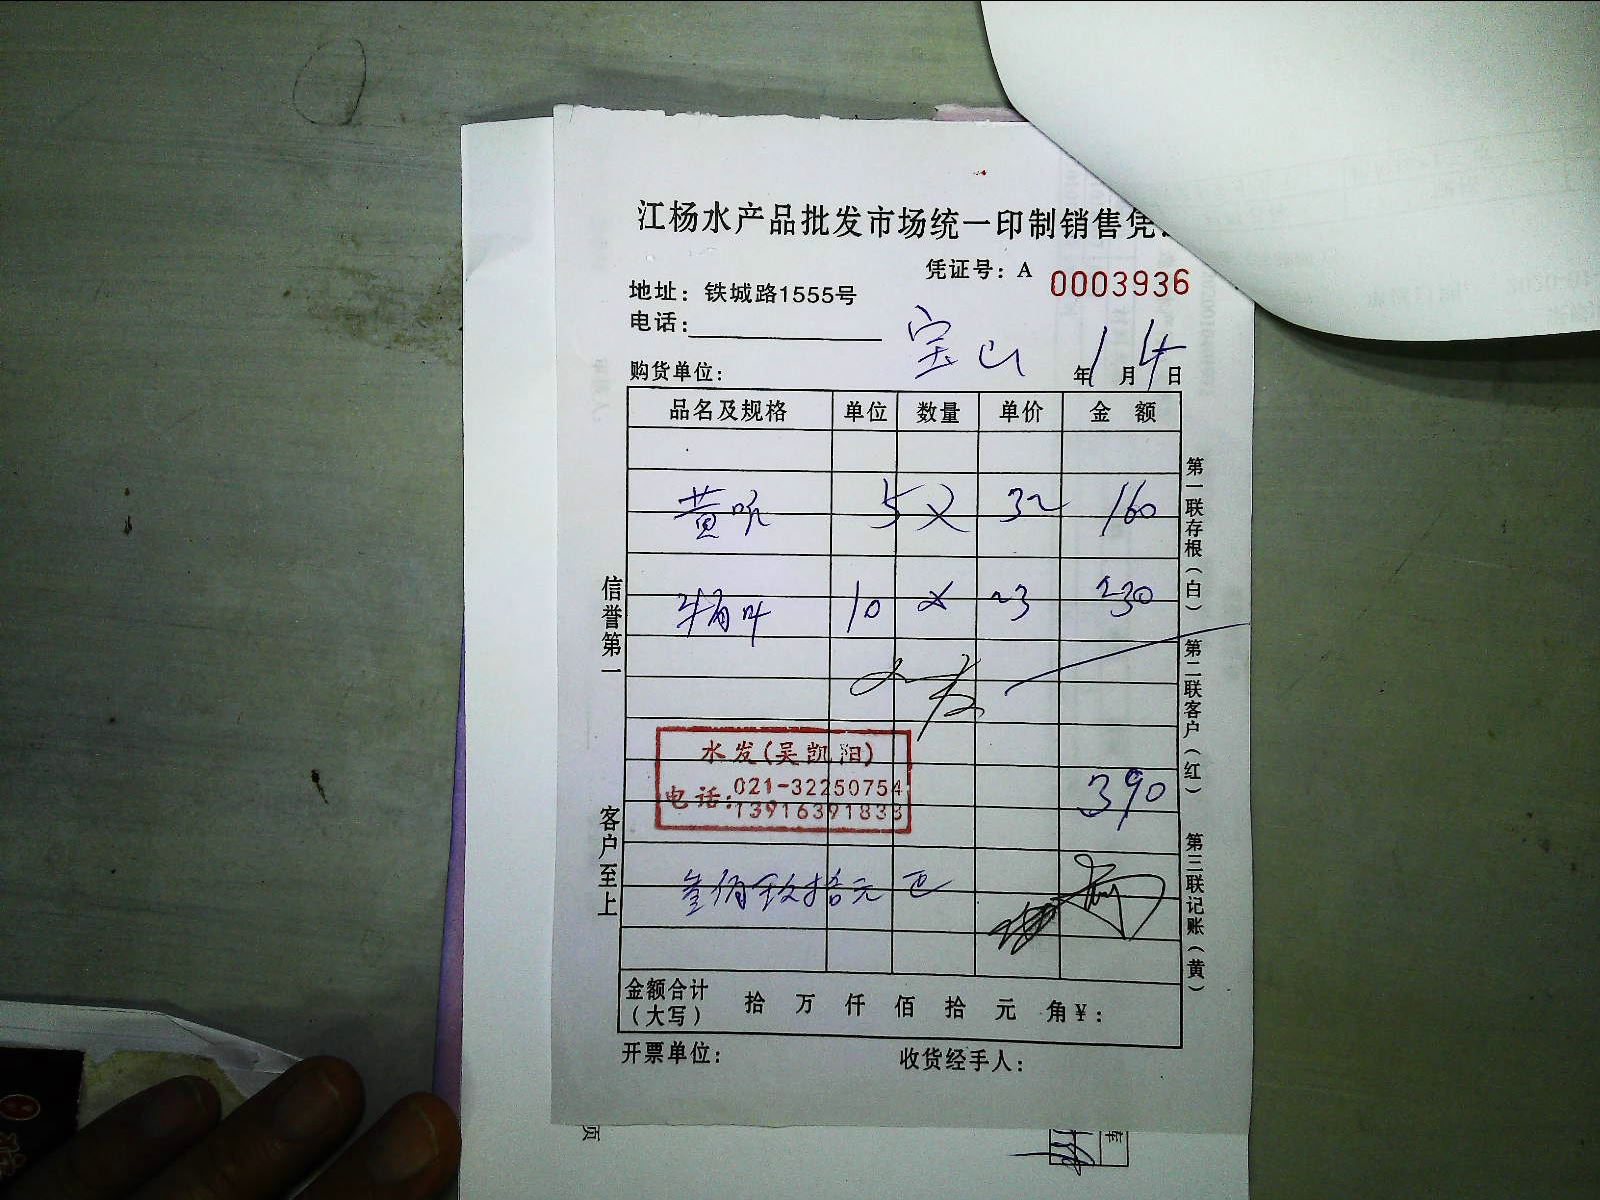 江杨水产品批发市场统一印制销售凭
凭证号：A 0003936
地址：铁城路1555号
电话：
宝山
购货单位： 年1月4日
品名及规格 单位 数量 单价 金 额
黄 5 × 32 160
10 × 23 230
水发
水发(吴凯阳)
电话：021-32250754
13916391833
390
叁佰玖拾元正
金额合计（大写） 拾 万 仟 佰 拾 元 角￥：
开票单位： 收货经手人：
信誉第一 客户至上
第一联存根（白） 第二联客户（红） 第三联记账（黄）
页